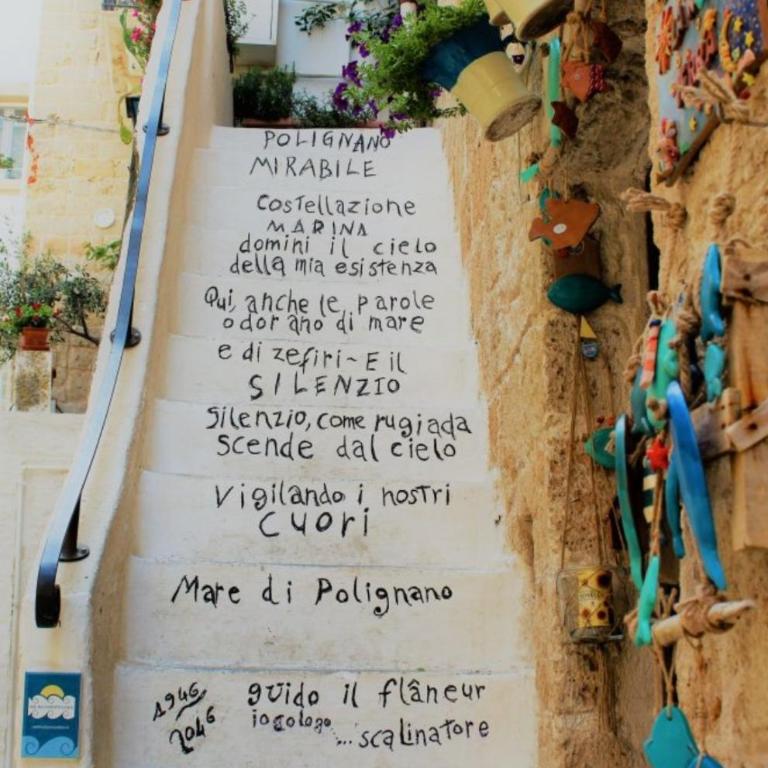 POLIGNANO
MIRABILE
COSTELLAZIONE
MARINA
domini il cielo
della mia esistenza
Qui, anche le parole
odorano di mare
e di zefiri~E il
SILENZIO
Silenzio, come rugiada
scende dal cielo
Vigilando i nostri
CUORI
Mare di Polignano
1946
2046
guido il flâneur
...scalinatore